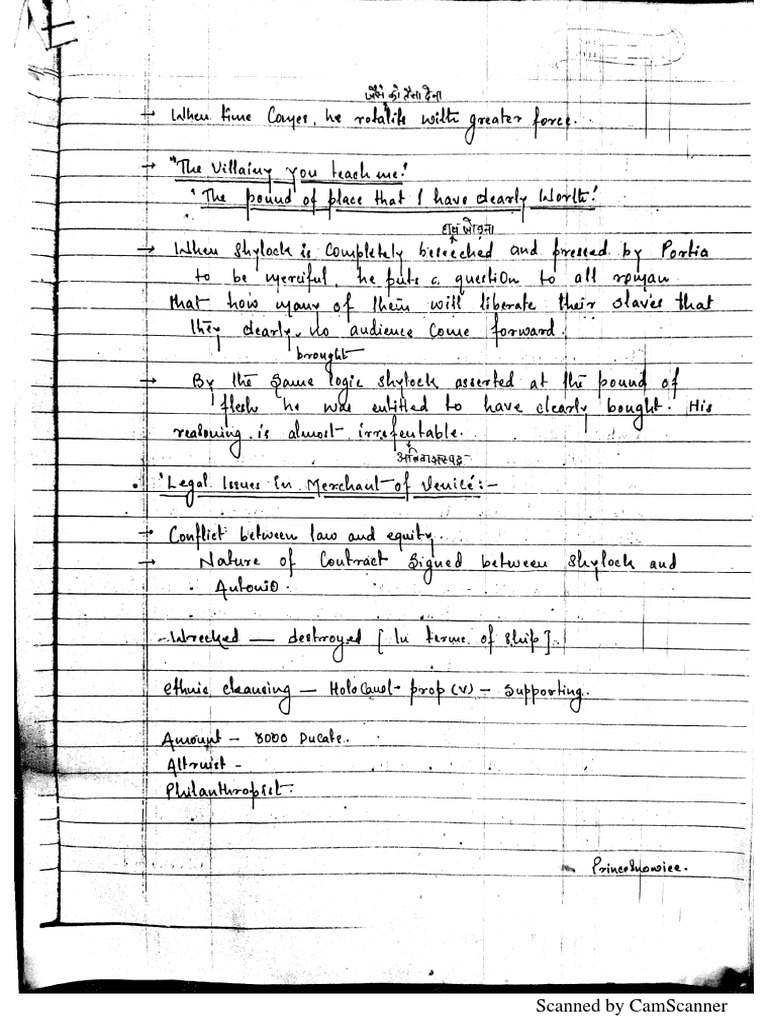 जैसे को तैसा देना
→ When time Comes, he rotalits with greater force.
→ "The Villainy you teach me."
'The pound of place that I have dearly Worth.'
हाथ जोड़ना
→ When Shylock is Completely beseeched and pressed by Portia
to be merciful, he puts a question to all roman
that how many of them will liberate their slaves that
they dearly no audience Come forward.
brought
→ By the Same logic Shylock asserted at the pound of
flesh he was entitled to have clearly bought. His
reasoning is almost irrefentable.
'Legal Issues In Merchant of Venice':-
→ Conflict between law and equity.
→ Nature of Contract Signed between Shylock and
Antonio.
- Wrecked — destroyed [In terms of ship].
Ethnic cleansing — prop (v) - Supporting.
Amount - 3000 Ducate.
Altruist -
Philanthropist.
Scanned by CamScanner